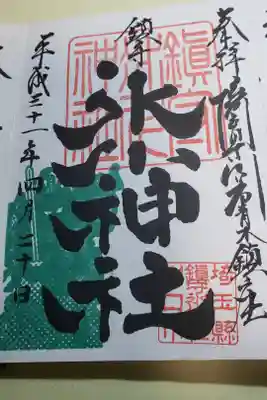 奉拝 埼玉県川口市青木鎮座
鎮守
氷川神社
平成三十一年四月二十日
鎮守
氷川
神社
埼玉縣